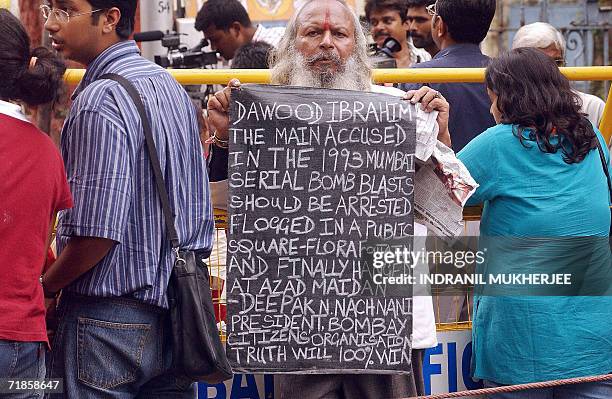 54
DAWOOD IBRAHIM
THE MAIN ACCUSED
IN THE 1993 MUMBAI
SERIAL BOMB BLASTS
SHOULD BE ARRESTED
FLOGGED IN A PUBLIC
SQUARE-FLORA
AND FINALLY HANGED
AT AZAD MAIDAN
-DEEPAK N. NACHNANI
PRESIDENT, BOMBAY
CITIZENS ORGANISATION
TRUTH WILL 100% WIN
gettyimages
INDRANIL MUKHERJEE
71858527